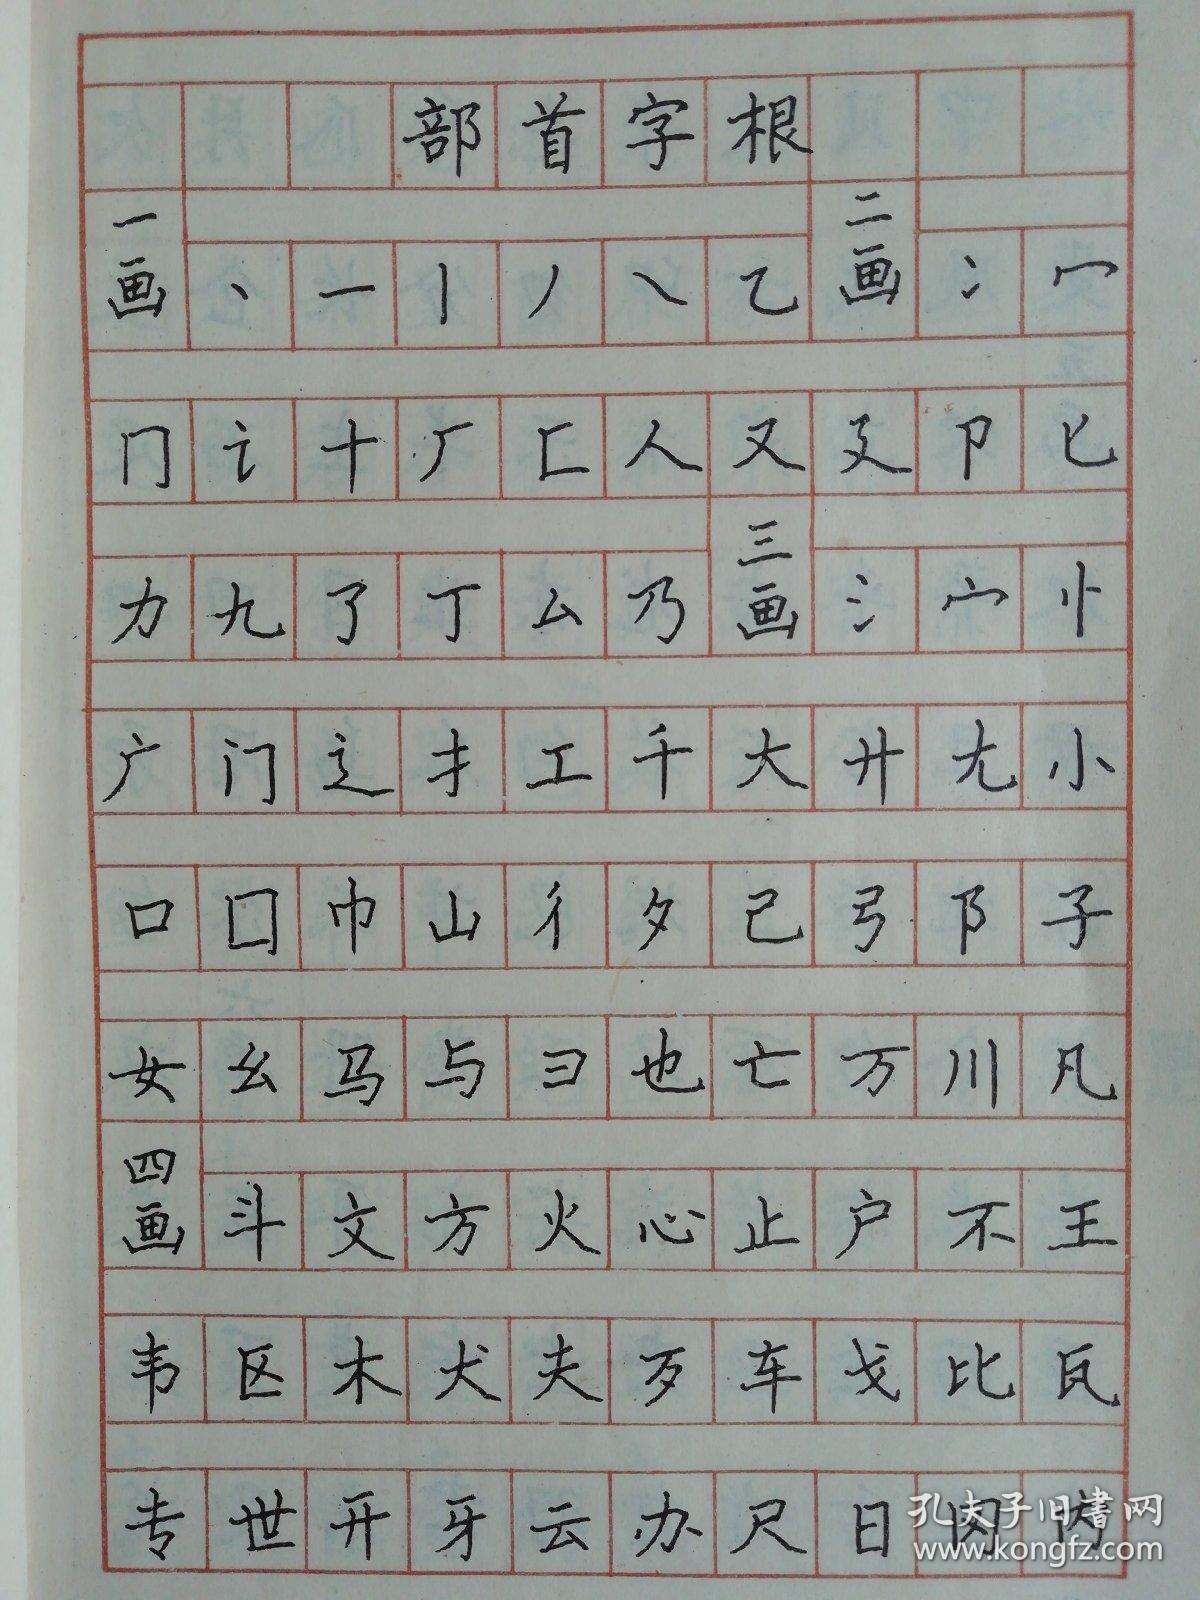 部首字根
一画 丶 一 丨 丿 ㇏ 乙 二画 冫 冖
冂 讠 十 厂 匚 人 又 廴 卩 㔾
力 九 了 丁 厶 乃 三画 氵 宀 忄
广 门 辶 扌 工 千 大 廾 尢 小
口 囗 巾 山 彳 夕 己 弓 阝 子
女 幺 马 与 彐 也 亡 万 川 凡
四画 斗 文 方 火 心 止 户 不 王
韦 区 木 犬 夫 歹 车 戈 比 瓦
专 世 开 牙 云 办 尺 日 内
孔夫子旧书网
www.kongfz.com